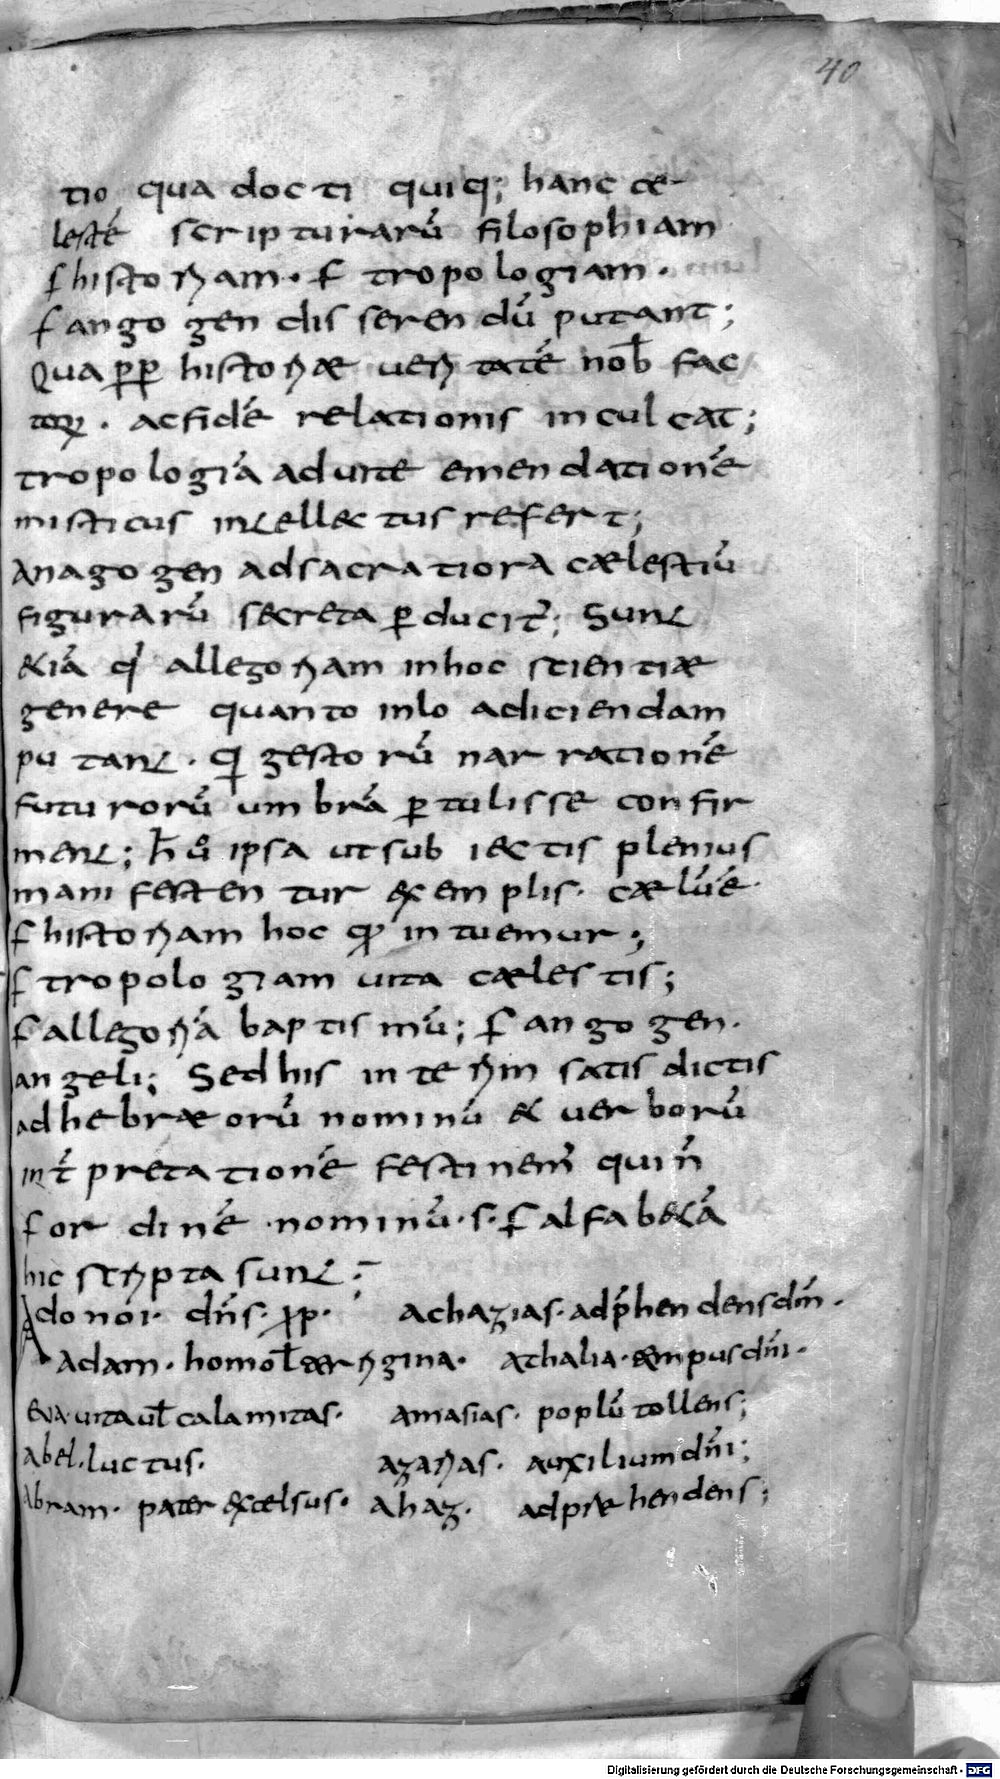 40
tio qua docti quiq; hanc cę
lestē scripturarū filosophiam
ſ historiam · ſ tropologiam ·
ſ angogen disserendū putant;
Qua ꝓp historiæ veritatē nob̄ fac
torꝝ · ac fidē relationis inculcat;
tropologiā ad vite emendationē
misticus intellectus refert;
anagogen ad sacratiora cælestiū
figurarū secreta ꝑducit̄; Sunt
&iā q̄ allegoriam in hoc scientiæ
genere quanto inlo adiciendam
putant · q̄ gestorū narrationē
futurorū umbrā ꝑtulisse confir
ment; h̄ ū ipsa ut subiectis plenius
manifestentur exemplis · cælū ē ·
ſ historiam hoc qͦ intuemur;
ſ tropologiam vita cælestis;
ſ allegoriā baptismū; ſ angogen ·
angeli; Sed his interim satis dictis
ad hebræorū nominū & verborū
int̄pretationē festinem̄ qui n̄
ſ ordinē · nominū · s · ſ alfab&ā
hic scripta sunt;
Adonoi · dn̄s · ꝓp · achazias · adp̄hendens dm̄ ·
Adam · homo ł terrigina · athalia · tempus dn̄i ·
Eva · vita ul̄ calamitas · amasias · poplū tollens;
abel · luctus · azarias · auxilium dn̄i;
abram · pater excelsus · ahaz · adprehendens;
Digitalisierung gefördert durch die Deutsche Forschungsgemeinschaft · DFG